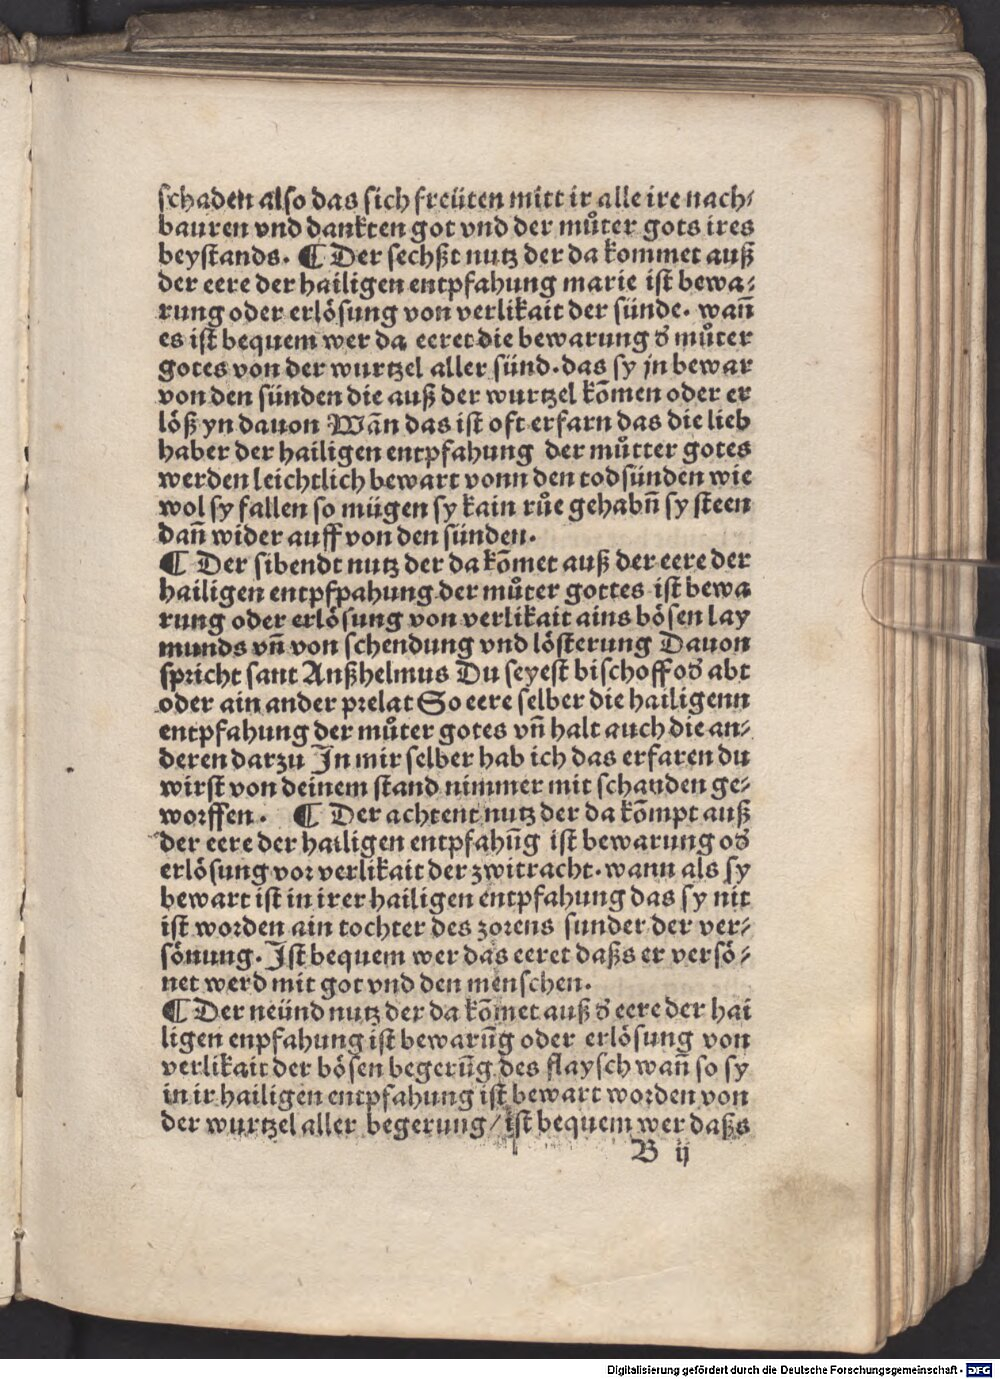 schaden also das sich freüten mitt ir alle ire nach⸗
bauren vnd dankten got vnd der můter gots ires
beystands. ¶ Der sechßt nutz der da kommet auß
der eere der hailigen entpfahung marie ist bewa⸗
rung oder erlösung von verlikait der sünde. wañ
es ist bequem wer da eeret die bewarung đ můter
gotes von der wurtzel aller sünd. das sy jn bewar
von den sünden die auß der wurtzel kõmen oder er
löß yn dauon Wãn das ist oft erfarn das die lieb
haber der hailigen entpfahung der můtter gotes
werden leichtlich bewart vonn den todsünden wie
wol sy fallen so mügen sy kain růe gehabñ sy steen
dañ wider auff von den sünden.
¶ Der sibendt nutz der da kõmet auß der eere der
hailigen entpfpahung der můter gottes ist bewa
rung oder erlösung von verlikait ains bösen lay
munds vñ von schendung vnd lösterung Dauon
spricht sant Anßhelmus Du seyest bischoff ođ abt
oder ain ander prelat So eere selber die hailigenn
entpfahung der můter gotes vñ halt auch die an⸗
deren darzu In mir selber hab ich das erfaren du
wirst von deinem stand nimmer mit schanden ge⸗
worffen. ¶ Der achtent nutz der da kõmpt auß
der eere der hailigen entpfahũg ist bewarung ođ
erlösung vor verlikait der zwitracht. wann als sy
bewart ist in irer hailigen entpfahung das sy nit
ist worden ain tochter des zorens sunder der ver⸗
sönung. Ist bequem wer das eeret daßs er versö⸗
net werd mit got vnd den menschen.
¶ Der neünd nutz der da kõmet auß đ eere der hai
ligen enpfahung ist bewarũg oder erlösung von
verlikait der bösen begerũg des flaysch wañ so sy
in ir hailigen entpfahung ist bewart worden von
der wurtzel aller begerung / ist bequem wer daßs
B ij
Digitalisierung gefördert durch die Deutsche Forschungsgemeinschaft - DFG